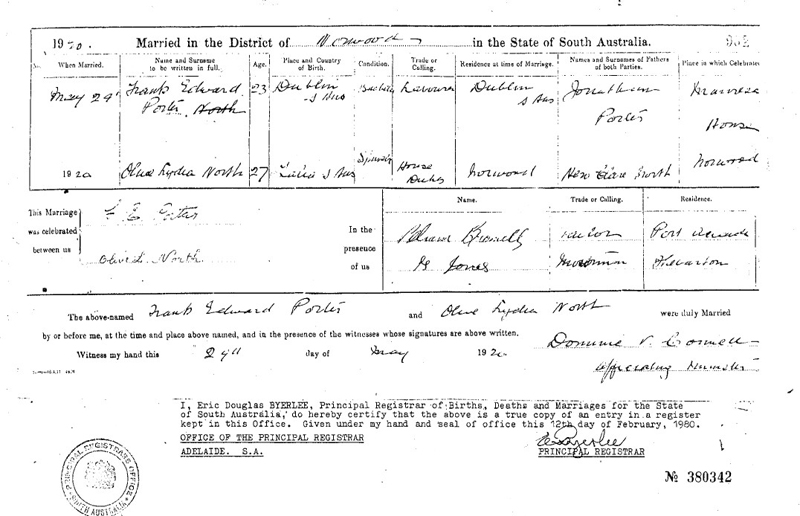 1920. Married in the District of Norwood in the State of South Australia. 952
When Married. Name and Surname to be written in full. Age. Place and Country of Birth. Condition. Trade or Calling. Residence at time of Marriage. Names and Surnames of Fathers of both Parties. Place in which Celebrated
May 29 Frank Edward 23 Dublin Labourer Dublin Jonathan Manresa
Porter North S Aus S Aus Porter House
1920 Olive Lydia North 27 S Aus Spinster House Duties Norwood North Norwood
This Marriage was celebrated between us
F. E. Porter
Olive L. North
In the presence of us
Name. Trade or Calling. Residence.
Port
G Jones
The above-named Frank Edward Porter and Olive Lydia North were duly Married
by or before me, at the time and place above named, and in the presence of the witnesses whose signatures are above written.
Witness my hand this 29th day of May 1920
Dominic V. Connell
officiating Minister
I, Eric Douglas BYERLEE, Principal Registrar of Births, Deaths and Marriages for the State
of South Australia, do hereby certify that the above is a true copy of an entry in a register
kept in this Office. Given under my hand and seal of office this 12th day of February, 1980.
OFFICE OF THE PRINCIPAL REGISTRAR
ADELAIDE. S.A.
PRINCIPAL REGISTRAR
PRINCIPAL REGISTRARS OFFICE
SOUTH AUSTRALIA
№ 380342